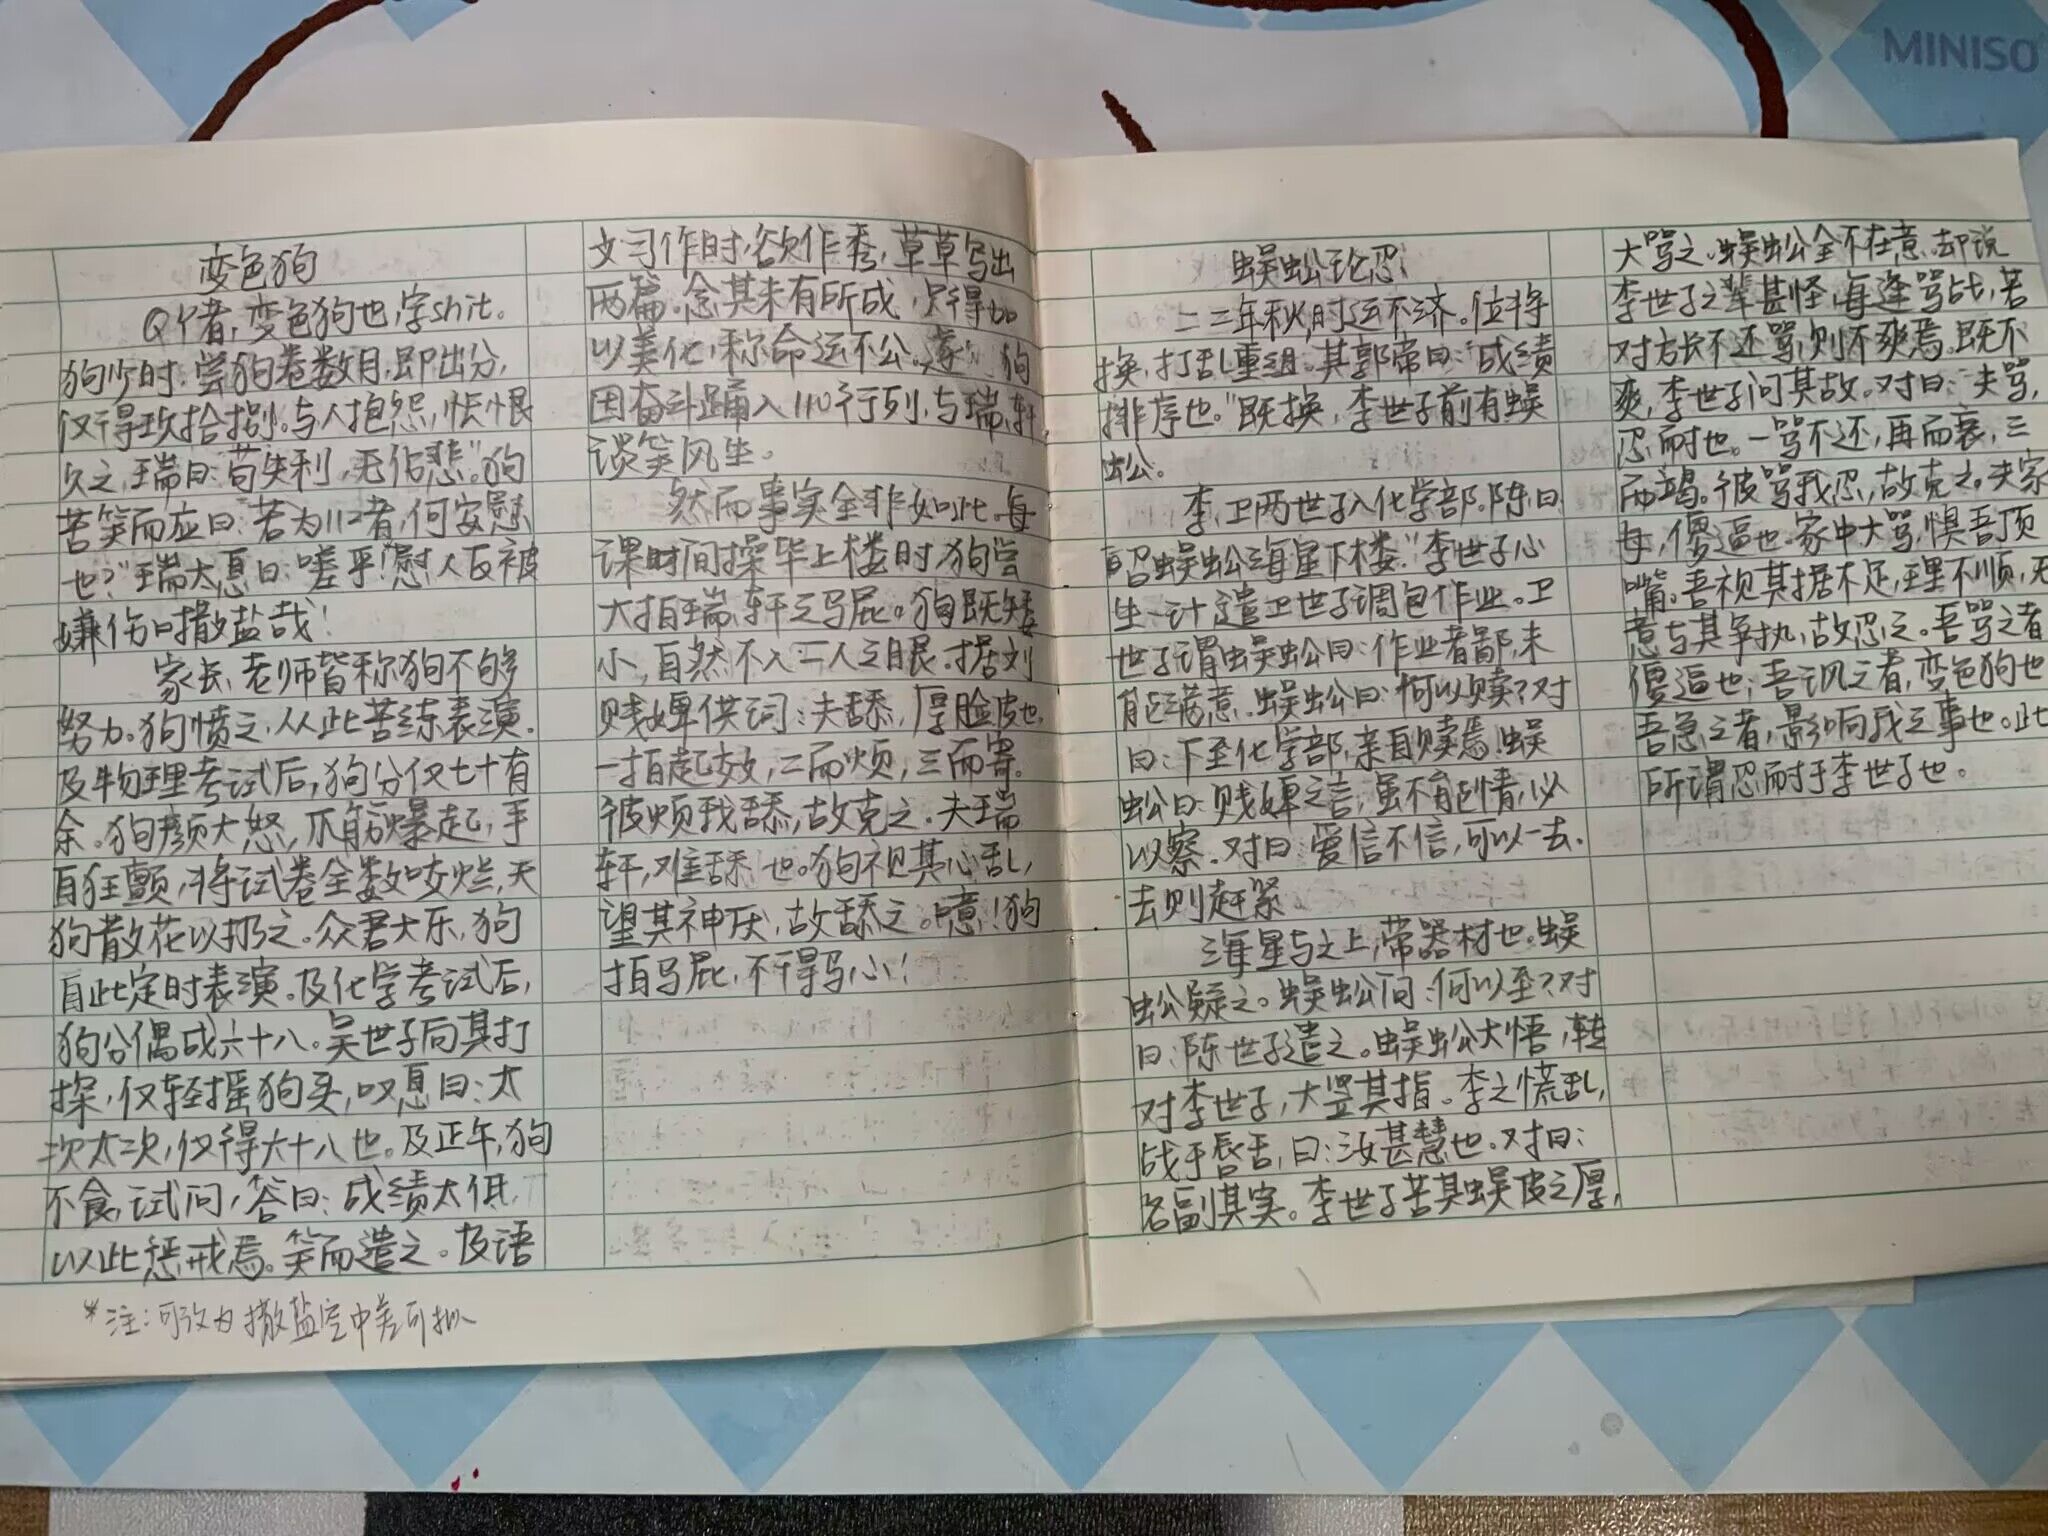 MINISO
变色狗
Q个者,变色狗也,字shit。
狗少时,尝狗卷数月,即出分,
仅得玖拾捌。与人抱怨,怅恨
久之,瑞曰:苟失利,无伤悲"。狗
苦笑而应曰:若为112者,何安慰
也?"瑞太息曰:嗟乎!慰人反被
嫌伤口撒盐哉!
家长、老师皆称狗不够
努力。狗愤之,从此苦练表演。
及物理考试后,狗分仅七十有
余。狗颜大怒,爪筋爆起,手
自狂颤,将试卷全数咬烂,天
狗散花以扔之。众君大乐,狗
自此定时表演。及化学考试后,
狗分偶成六十八。吴世子向其打
探,仅轻摇狗头,叹息曰:太
次太次,仅得六十八也。及正午,狗
不食,试问,答曰:成绩太低,
以此惩戒焉。笑而遣之。及语
*注:可改为撒盐空中差可拟
文习作时,欲作秀,草草写出
两篇。念其未有所成,只得加
以美化,称命运不公。遂,狗
因奋斗踊入110行列,与瑞,轩
谈笑风生。
然而事实全非如此。每
课时间操毕上楼时,狗尝
大拍瑞,轩之马屁。狗既矮
小,自然不入二人之眼。据刘
贱婢供词:夫舔,厚脸皮也,
一拍起效,二而烦,三而寄。
彼烦我舔,故克之。夫瑞
轩,难舔也。狗视其心乱,
望其神厌,故舔之。噫!狗
拍马屁,不得马心!
蜈蚣论忍
二三年秋,时运不济。位将
换,打乱重组。其郭常曰:"成绩
排序也。"既换,李世子前有蜈
蚣。
李、卫两世子入化学部。陈曰
召蜈蚣海星下楼。"李世子心
生一计,遣卫世子调包作业。卫
世子谓蜈蚣曰:作业者鄙,未
能满意。蜈蚣曰:何以赎?对
曰:下至化学部,亲自赎焉。蜈
蚣曰:贱婢之言,虽不有趣情,必
以察。对曰:爱信不信,可以一去.
去则赶紧
海星与之上,带器材也。蜈
蚣疑之。蜈蚣问:何以至?对
曰:陈世子遣之。蜈蚣大悟,转
对李世子,大竖其指。李之慌乱,
战于唇舌,曰:汝甚慧也。对曰:
名副其实。李世子苦其蜈皮之厚,
大骂之。蜈蚣全不在意。却说
李世子之辈甚怪,每逢骂战,若
对方长不还骂,则不爽焉。既不
爽,李世子问其故。对曰:"夫骂,
忍耐也。一骂不还,再而衰,三
而竭。彼骂我忍,故克之。夫家
母,傻逼也。家中大骂,惧吾顶
嘴。吾视其据不足,理不顺,无
意与其争执,故忍之。吾骂之者
傻逼也;吾讽之者,变色狗也
吾急之者,影响我之事也。此
所谓忍耐于李世子也。